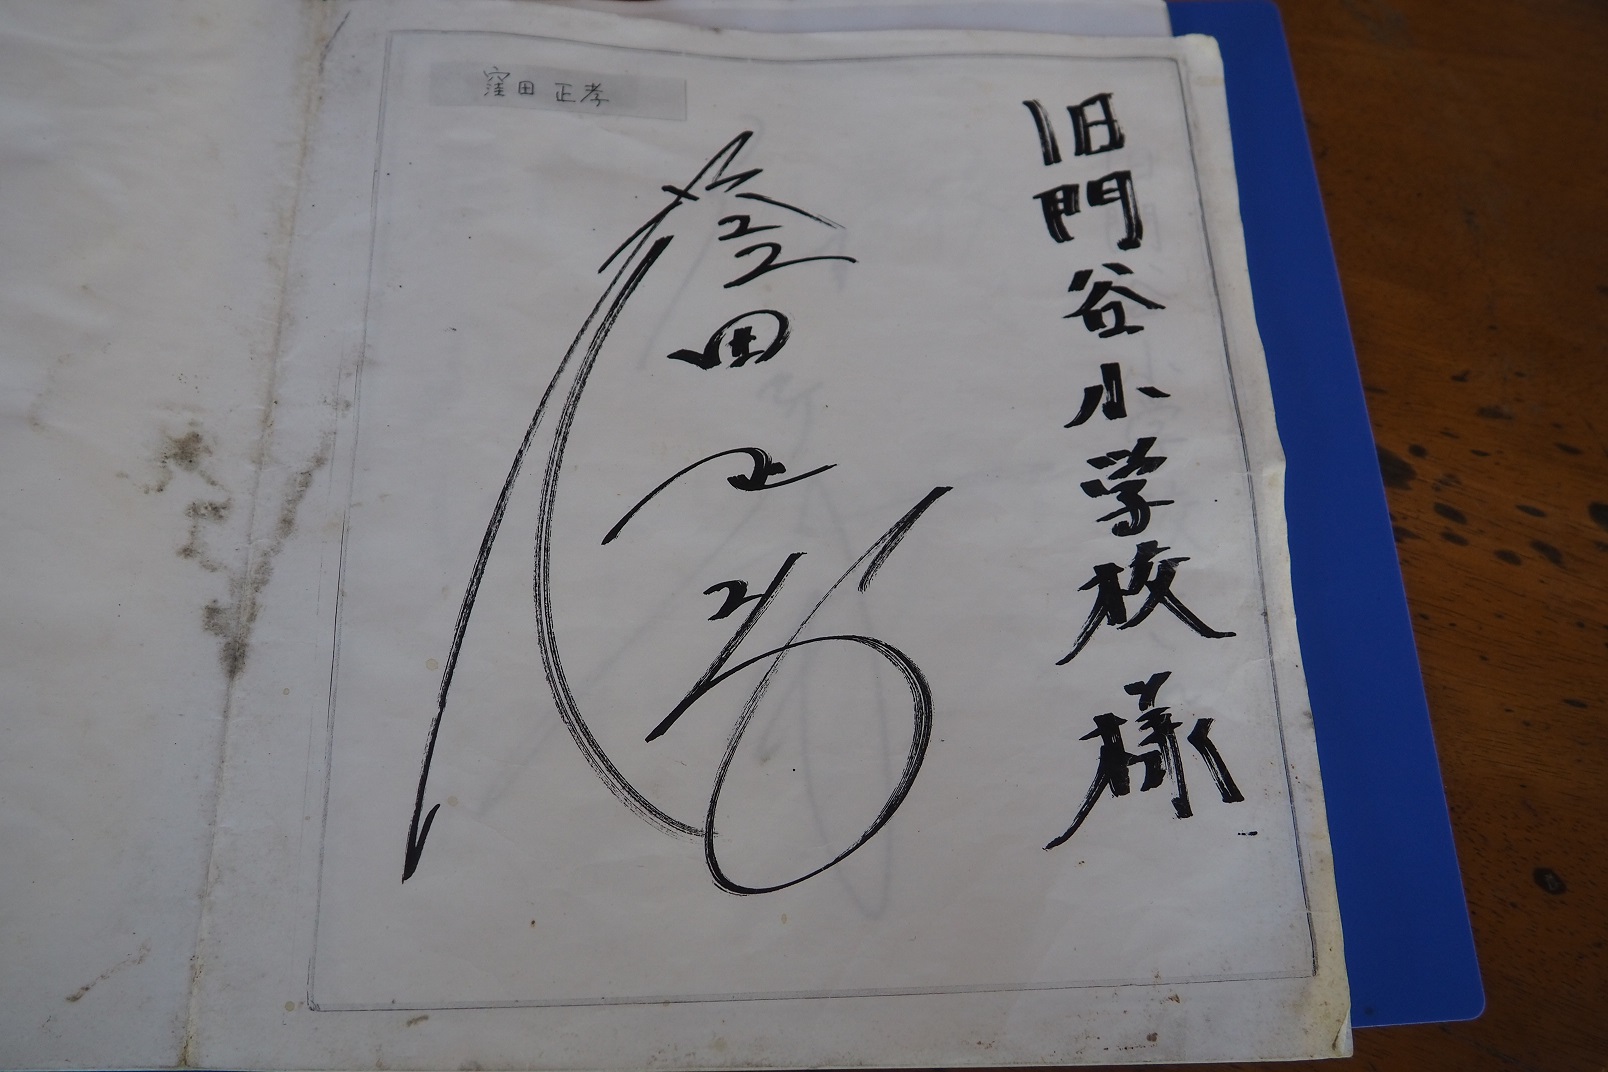 窪田 正孝
旧門谷小学校様
窪田正孝